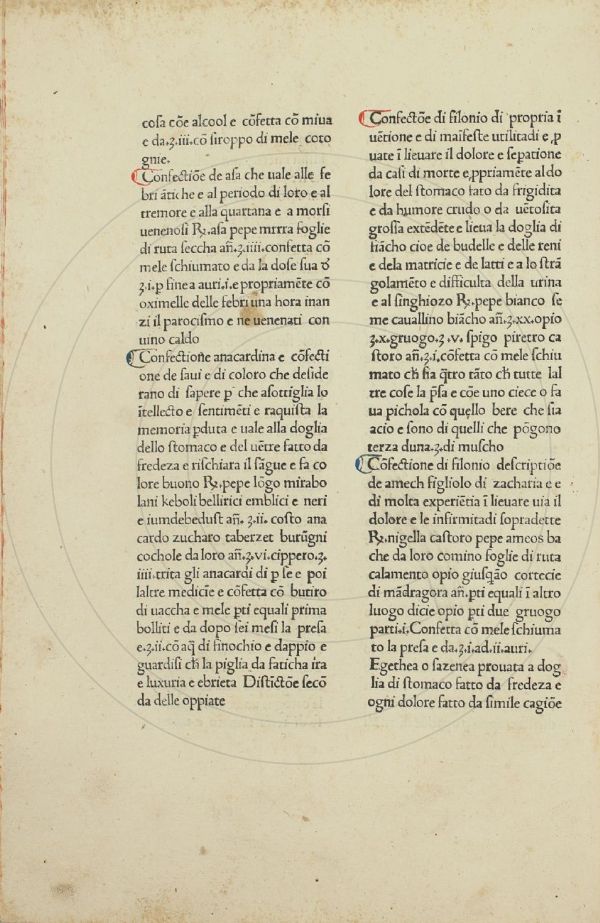 cosa cõe alcool e cõfetta cõ miua
e da.ʒ.iii.cõ siroppo di mele coto
gnie.
Confectiõe de asa che uale alle fe
bri ãtiche e al periodo di loro e al
tremore e alla quartana e a morsi
uenenosi ℞.asa pepe mirra foglie
di ruta seccha añ.ʒ.iiii.confetta cõ
mele schiumato e da la dose sua d
ʒ.i.p fine a auri.i.e propriamẽte cõ
oximelle delle febri una hora inan
zi il parocismo e ne uenenati con
uino caldo
Confectione anacardina e cõfecti
one de saui e di coloro che deside
rano di sapere p che asottiglia lo
ĩtellecto e sentimẽti e raquista la
memoria pduta e uale alla doglia
dello stomaco e del uẽtre fatto da
fredeza e rischiara il sãgue e fa co
lore buono ℞.pepe lõgo mirabo
lani keboli bellirici emblici e neri
e iumdebedust añ.ʒ.ii.costo ana
cardo zucharo taberzet burũgni
cochole da loro añ.ʒ.vi.cippero.ʒ.
iiii.trita gli anacardi di p se e poi
laltre medicĩe e cõfetta cõ butiro
di uaccha e mele pti equali prima
bolliti e da dopo sei mesi la presa
e.ʒ.ii.cõ aq̃ di finochio e dappio e
guardisi ch̃ la piglia da faticha ira
e luxuria e ebrieta Distĩctõe secõ
da delle oppiate
Confectõe di filonio di propria ĩ
uẽtione e di maifeste utilitadi e ,p
uate ĩ lieuare il dolore e sepatione
da casi di morte e,ppriamẽte al do
lore del stomaco fato da frigidita
e da humore crudo o da uẽtosita
grossa extẽdẽte e lieua la doglia di
fiãcho cioe de budelle e delle reni
e dela matricie e de latti e a lo strã
golamẽto e difficulta della urina
e al singhiozo ℞.pepe bianco se
me cauallino biãcho añ.ʒ.xx.opio
ʒ.x.gruogo.ʒ.v.spigo piretro ca
storo añ.ʒ.i.cõfetta cõ mele schiu
mato ch̃ sia q̃tro tãto ch̃ tutte lal
tre cose la p̃sa e cõe uno ciece o fa
ua pichola cõ quello bere che sia
acio e sono di quelli che põgono
terza duna.ʒ.di muscho
Cõfectione di filonio descriptiõe
de amech figliolo di zacharia e e
di molta experiẽtia ĩ lieuare uia il
dolore e le infirmitadi sopradette
℞.nigella castoro pepe ameos ba
che da loro comino foglie di ruta
calamento opio giusq̃ão cortecie
di mãdragora añ.pti equali ĩ altro
luogo dicie opio pti due gruogo
parti.i.Confetta cõ mele schiuma
to la presa e da.ʒ.i.ad.ii.auri.
Egethea o sazenea prouata a dog
lia di stomaco fatto da fredeza e
ogni dolore fatto da simile cagiõe